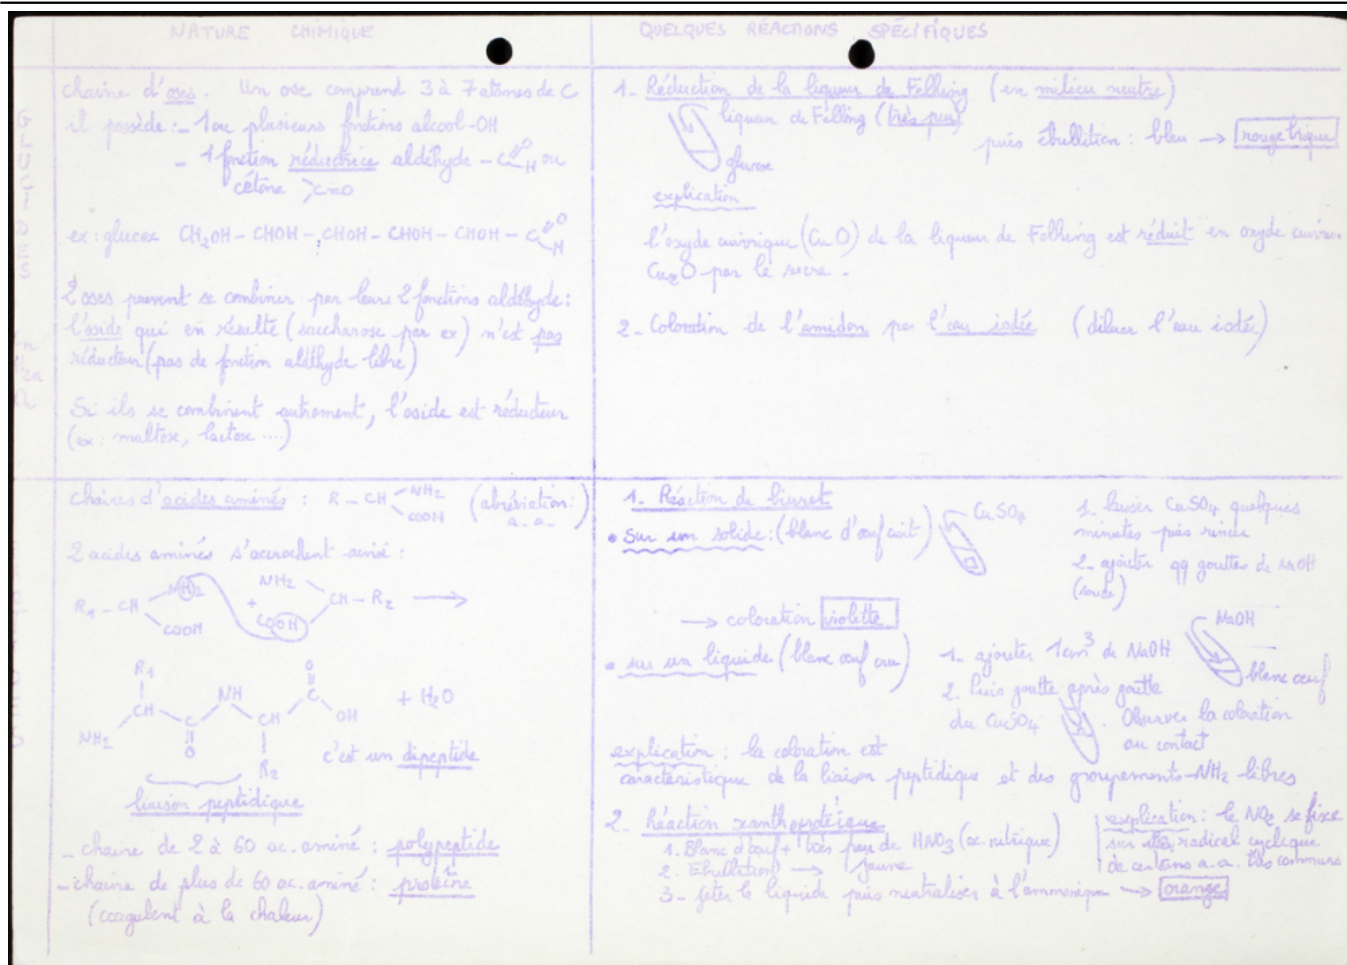 NATURE CHIMIQUE
QUELQUES RÉACTIONS SPÉCIFIQUES
GLUCIDES
chaîne d'oses. Un ose comprend 3 à 7 atomes de C
il possède : - 1 ou plusieurs fonctions alcool -OH
- 1 fonction réductrice aldéhyde - C O H ou
cétone >C=O
ex : glucose CH2OH - CHOH - CHOH - CHOH - CHOH - C O H
2 oses peuvent se combiner par leurs 2 fonctions aldéhyde :
l'oside qui en résulte (saccharose par ex) n'est pas
réducteur (pas de fonction aldéhyde libre)
Si ils se combinent autrement, l'oside est réducteur
(ex : maltose, lactose ....)
1. Réduction de la liqueur de Felhing (en milieu neutre)
liqueur de Felling (très peu)
glucose
puis ébullition : bleu → rouge brique
explication
l'oxyde cuivrique (CuO) de la liqueur de Felhing est réduit en oxyde cuivreux
Cu2O par le sucre.
2 - Coloration de l'amidon par l'eau iodée (diluer l'eau iodée)
chaînes d'acides aminés : R - CH NH2 COOH (abréviation : a.a.)
2 acides aminés s'accrochent ainsi :
R1 - CH NH2 COOH + NH2 COOH CH - R2 →
R1 CH NH2 C O NH CH R2 C O OH + H2O
c'est un dipeptide
liaison peptidique
- chaîne de 2 à 60 ac. aminé : polypeptide
- chaîne de plus de 60 ac. aminé : protéine
(coagulent à la chaleur)
1. Réaction de biuret
• sur un solide : (blanc d'œuf cuit)
CuSO4
1. laisser CuSO4 quelques
minutes puis rincer
2. ajouter qq gouttes de NaOH
(soude)
→ coloration violette
• sur un liquide (blanc œuf cru)
1. ajouter 1cm3 de NaOH
2. Puis goutte après goutte
du CuSO4. Observer la coloration
au contact
NaOH
blanc œuf
explication : la coloration est
caractéristique de la liaison peptidique et des groupements -NH2 libres
2. Réaction xanthoprotéique
1. Blanc d'œuf + très peu de HNO3 (ac. nitrique)
2. Ebullition → jaune
3 - jeter le liquide puis neutraliser à l'ammoniaque → orange
explication : le NO2 se fixe
sur radical cyclique
de certains a.a. très communs